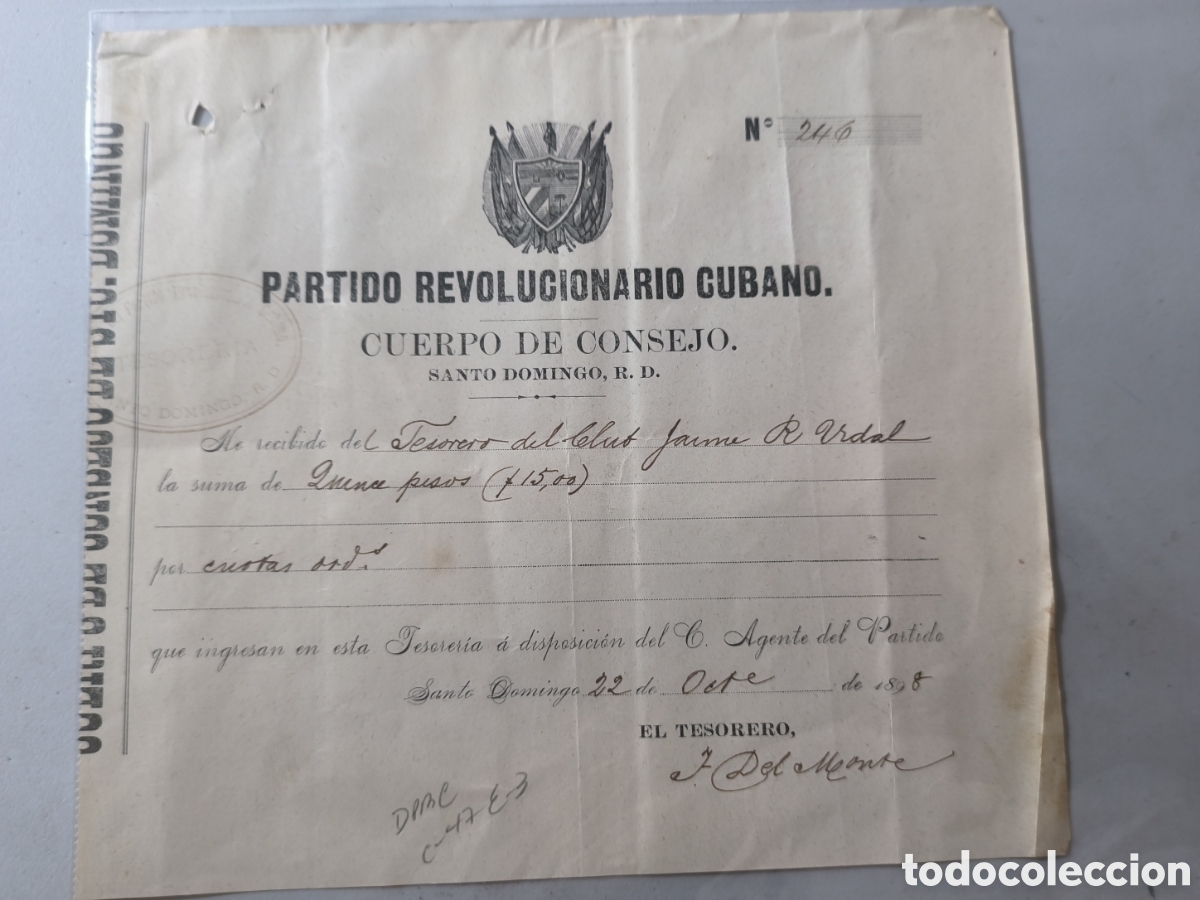 Nº 246
PARTIDO REVOLUCIONARIO CUBANO.
CUERPO DE CONSEJO.
SANTO DOMINGO, R. D.
TESORERIA
SANTO DOMINGO, R. D.
He recibido del Tesorero del Club Jaime R Vidal
la suma de Quince pesos ($15,00)
por cuotas ords
que ingresan en esta Tesorería á disposición del C. Agente del Partido
Santo Domingo 22 de Octe de 1898
EL TESORERO,
F Del Monte
C-47 E-3
todocoleccion